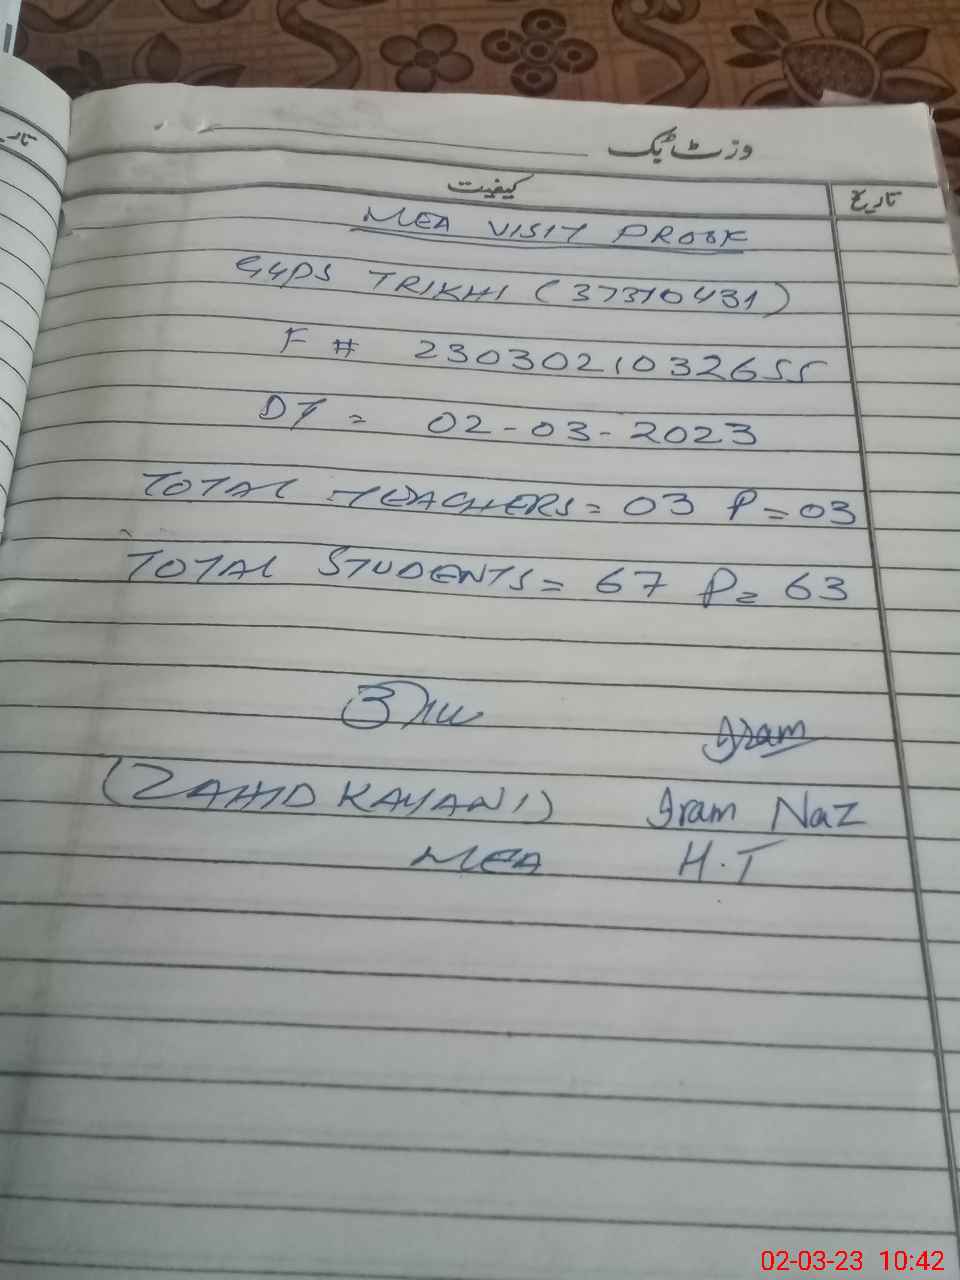 وزٹ بک
تاریخ
کیفیت
MEA VISIT PROOF
GGPS TRIKHI (37310431)
F # 230302103265S
DT = 02-03-2023
TOTAL TEACHERS = 03 P = 03
TOTAL STUDENTS = 67 P = 63
Iram
(ZAHID KAYANI) Iram Naz
MEA H.T
02-03-23 10:42